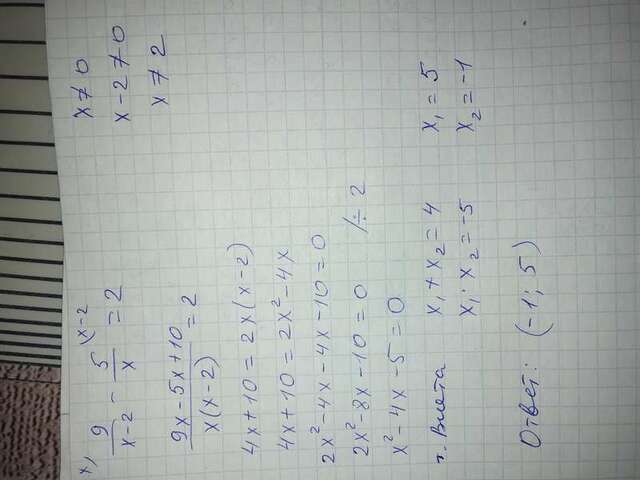 x) 9/(x-2) - 5/x (x-2 = 2
x ≠ 0
x - 2 ≠ 0
x ≠ 2
(9x - 5x + 10)/(x(x-2)) = 2
4x + 10 = 2x(x-2)
4x + 10 = 2x² - 4x
2x² - 4x - 4x - 10 = 0
2x² - 8x - 10 = 0 /÷ 2
x² - 4x - 5 = 0
т. Виета x₁ + x₂ = 4 x₁ = 5
x₁ · x₂ = -5 x₂ = -1
Ответ: (-1; 5)